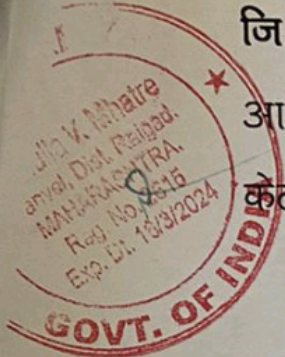 V. Mhatre
anvel, Dist. Raigad.
MAHARASHTRA.
Reg. No.
Exp. Dt. 18/3/2024
GOVT. OF INDIA
जि
आ